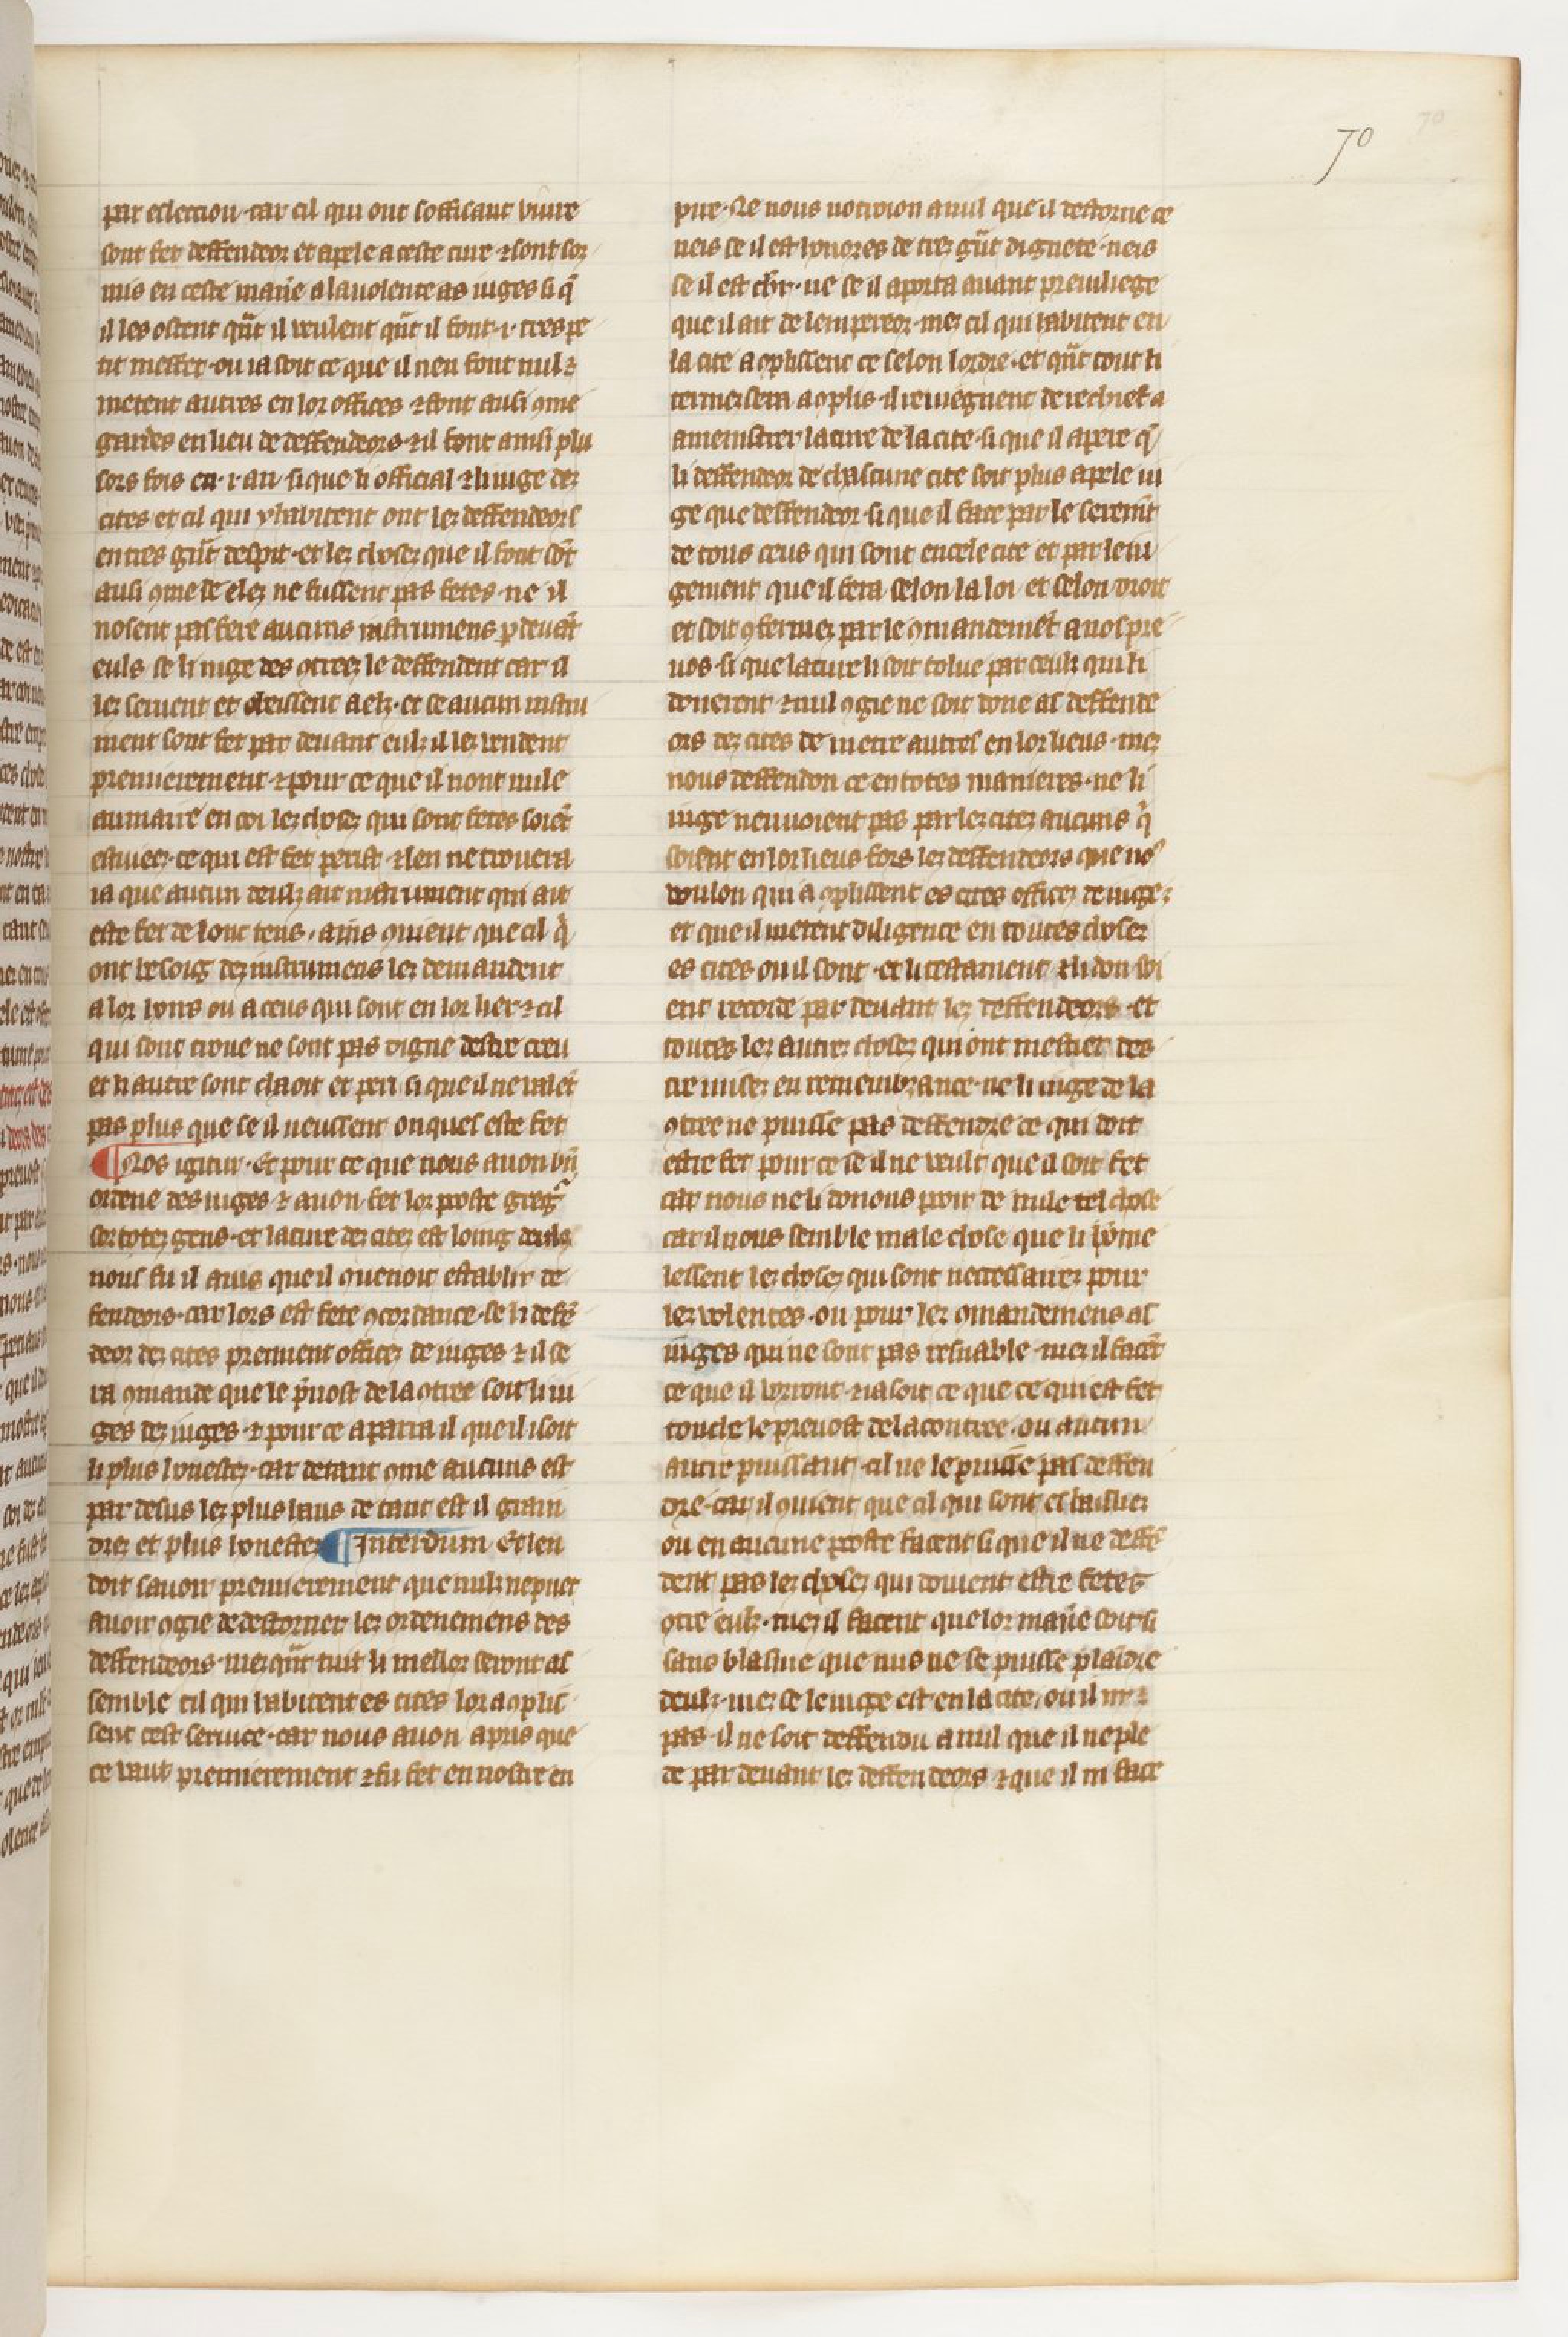 70
par eslection · car cil qui ont soffisant viure
sont fet deffendeor et apele a ceste cure · ⁊ sont soz
mis en ceste mañe a la uolente as iuges si q̃
il les ostent q̃nt il veulent q̃nt il font · i · tres pe
tit meffet · ou ia soit ce que il nen font nul ⁊
metent autres en lor offices ⁊ sont ausi ꝯme
gardes en lieu de deffendeors · ⁊ il font ainsi plu
sors fois en · i · an · si que li official ⁊ li iuge dez
cites et cil qui y habitent ont lez deffendeors
en tres gñt despit · et lez chosez que il font sõt
ausi ꝯme se elez ne fussent pas fetes · ne il
nosent pas fere aucuns instrumens ꝑ deuãt
euls se li iuge des ꝯtreez le deffendent car il
lez seruent et obeissent a elz · et se aucun instru
ment sont fet par deuant eulz il lez vendent
premierement · ⁊ pour ce que il nont nule
aumaire en coi lez chosez qui sont fetes soiẽt
estuiees · ce qui est fet perist · ⁊ len ne trouera
ia que aucun deulz ait instrument qui ait
este fet de lonc tens · ains ꝯuient que cil q̃
ont besoig dez instrumens lez demandent
a lor hoirs ou a ceus qui sont en lor lieu · ⁊ cil
qui sont troue ne sont pas digne destre creu
et li autre sont chaoit et peri si que il ne valẽt
pas plus que se il neussent onques este fet
¶ Nos igitur · Et pour ce que nous auon bñ
ordene des iuges ⁊ auon fet lor poste greig̃
sor totez gens · et la cure dez citez est loing deulz
nous fu il auis que il ꝯuenoit establir de
fendeors · car lors est fete ꝯcordance · se li defẽ
deor dez cites prennent officez de iuges ⁊ il se
ra ꝯmande que le p̃uost de la ꝯtree soit li iu
ges dez iuges · ⁊ pour ce aparra il que il isoit
li plus honestez · car de tant ꝯme aucuns est
par desus lez plus haus de tant est il grain
drez et plus honestez ¶ Interdum Et len
doit sauoir premierement que nulz ne puet
auoir ꝯgie de destorner lez ordenemens des
deffendeors · mez q̃nt tuit li mellor seront as
semble cil qui habitent es cites lor aꝯplis
sent cest seruice · car nous auon apris que
ce vaut premierement ⁊ fu fet en nostre en
pire · Ne nous notroion a nul que il destorne ce
neis se il est honores de trez gñt dignete · neis
se il est chr̃ · ne se il aporta auant preuiliege
que il ait de lempereor · mez cil qui habitent en
la cite aꝯplissent ce selon lordre · et q̃nt tout li
termez sera aꝯplis · il reuiegnent derechief a
amenistrer la cure de la cite · si que il apere q̃
li deffendeor de chascune cite soit plus apele iu
ge que deffendeor · si que il face par le seremt
de tous ceus qui sont en cele cite et par le iu
gement que il fera selon la loi et selon droit
et soit ꝯfermez par le ꝯmandemẽt a nos pre
uos · si que la cure li soit tolue par ceulz qui li
donerent · ⁊ nul ꝯgie ne soit done as deffende
ors dez cites de metre autres en lor lieus · mez
nous deffendon ce en totes manieres · ne li
iuge nenuoient pas par lez citez aucuns q̃
soient en lor lieus fors lez deffendeors que noꝰ
voulon qui aꝯplissent es cites officez de iuge ⁊
et que il metent diligence en toutes chosez
es cites ou il sont · et li testament ⁊ li don soi
ent recorde par deuant lez deffendeors · et
toutes lez autrez chosez qui ont mestier des
tre misez en remembrance · ne li iuge de la
ꝯtree ne puisse pas deffendre ce qui doit
estre fet pour ce se il ne veult que il soit fet
car nous ne li donons pour de nule tel chose
car il nous semble male chose que li hõme
lessent lez chosez qui sont neccessairez pour
lez volentes · ou pour lez ꝯmandemens as
iuges qui ne sont pas resnable · mez il facẽt
ce que il vorront · ⁊ ia soit ce que ce qui est fet
touche le preuost de la contree · ou aucun
autre puissant · cil ne le puisse pas deffen
dre · car il ꝯuient que cil qui sont es bailliez
ou en aucune poste facent si que il ne deffẽ
dent pas lez chosez qui doiuent estre fetes
ꝯtre eulz · mez il facent que lor mañe soit si
sans blasme que nus ne se puisse plaĩdre
deulz · mez se le iuge est en la cite · ou il ni ẽ
pas · il ne soit deffendu a nul que il ne ple
de par deuant lez deffendeors ⁊ que il ni face